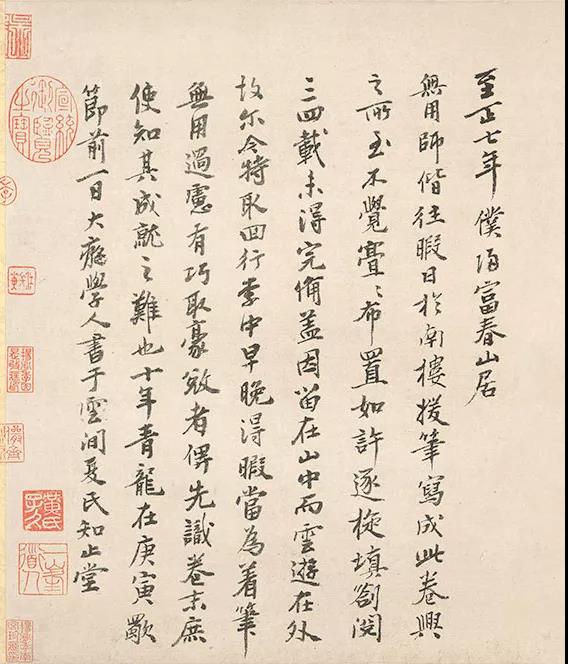 至正七年僕歸富春山居
無用師偕往暇日於南樓援筆寫成此卷興
之所至不覺亹亹布置如許逐旋填劄閱
三四載未得完備蓋因留在山中而雲遊在外
故尔今特取回行李中早晚得暇當為着筆
無用過慮有巧取豪敓者俾先識卷末庶
使知其成就之難也十年青龍在庚寅歜
節前一日大癡學人書于雲間夏氏知止堂
宣統御覽之寶
黃氏子久
一峯道人